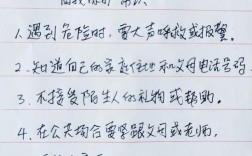 1、遇到危险时,要大声呼救或报警。
2、知道自己的家庭住址和父母电话号码
3、不接受陌生人的礼物或帮助。
4、在公共场合要紧跟父母或老师。